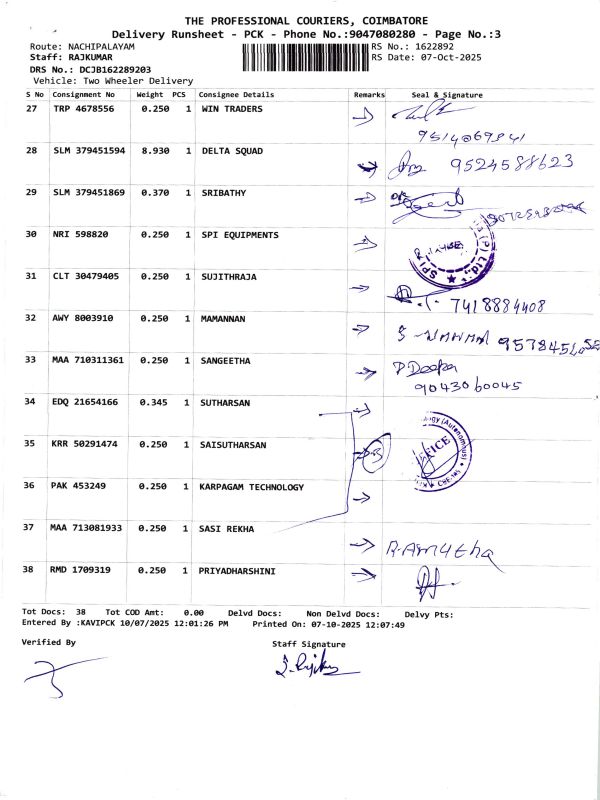 THE PROFESSIONAL COURIERS, COIMBATORE
Delivery Runsheet - PCK - Phone No.:9047080280 - Page No.:3
Route: NACHIPALAYAM RS No.: 1622892
Staff: RAJKUMAR RS Date: 07-Oct-2025
DRS No.: DCJB162289203
Vehicle: Two Wheeler Delivery
S No Consignment No Weight PCS Consignee Details Remarks Seal & Signature
27 TRP 4678556 0.250 1 WIN TRADERS
28 SLM 379451594 8.930 1 DELTA SQUAD 9524588623
29 SLM 379451869 0.370 1 SRIBATHY
30 NRI 598820 0.250 1 SPI EQUIPMENTS
31 CLT 30479405 0.250 1 SUJITHRAJA 7418884408
32 AWY 8003910 0.250 1 MAMANNAN
33 MAA 710311361 0.250 1 SANGEETHA P Deepa
9043060045
34 EDQ 21654166 0.345 1 SUTHARSAN
35 KRR 50291474 0.250 1 SAISUTHARSAN
36 PAK 453249 0.250 1 KARPAGAM TECHNOLOGY
37 MAA 713081933 0.250 1 SASI REKHA R.Amutha
38 RMD 1709319 0.250 1 PRIYADHARSHINI
Tot Docs: 38 Tot COD Amt: 0.00 Delvd Docs: Non Delvd Docs: Delvy Pts:
Entered By :KAVIPCK 10/07/2025 12:01:26 PM Printed On: 07-10-2025 12:07:49
Verified By Staff Signature